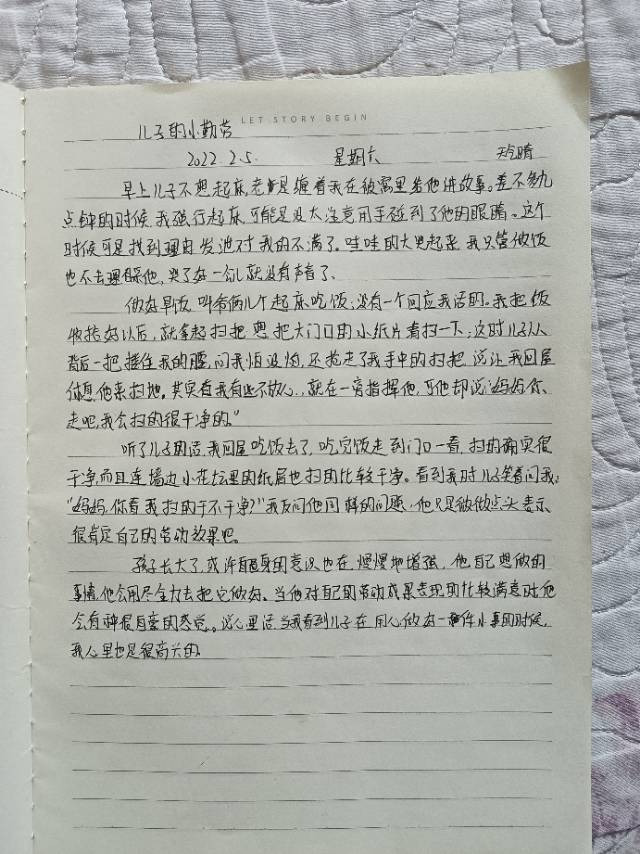 LET STORY BEGIN
儿子的小勤劳
2022.2.5. 星期六 晴
早上儿子不想起床,老是缠着我在被窝里给他讲故事。差不多九
点钟的时候,我强行起床,可能是没太注意用手碰到了他的眼睛。这个
时候可是找到理由发泄对我的不满了。哇哇的大哭起来,我只管做饭
也不去理睬他,哭了好一会儿就没有声音了、
做好早饭,叫爷俩儿个起床吃饭;没有一个回应我话的。我把饭
收拾好以后,就拿起扫把想把大门口的小纸片看扫一下;这时儿子从
背后一把搂住我的腰,问我烦没烦,还抢走了我手中的扫把,说让我回屋
休息,他来扫地。其实看我有些不放心,就在一旁指挥他,可他却说:"妈妈你
走吧,我会扫的很干净的。"
听了儿子的话,我回屋吃饭去了,吃完饭走到门口一看,扫的确实很
干净,而且连墙边小花坛里的纸屑也扫的比较干净。看到我时儿子笑着问我:
"妈妈,你看我扫的干不干净?"我反问他同样的问题,他只是微微点头表示、
很肯定自己的劳动效果吧。
孩子长大了,或许自身的意识也在慢慢地增强,他自己想做的
事情他会用尽全力去把它做好。当他对自己的劳动成果表现的比较满意时,他
会有种很自豪的感觉。说心里话,当我看到儿子在用心做好一件小事的时候,
我心里也是很高兴的.